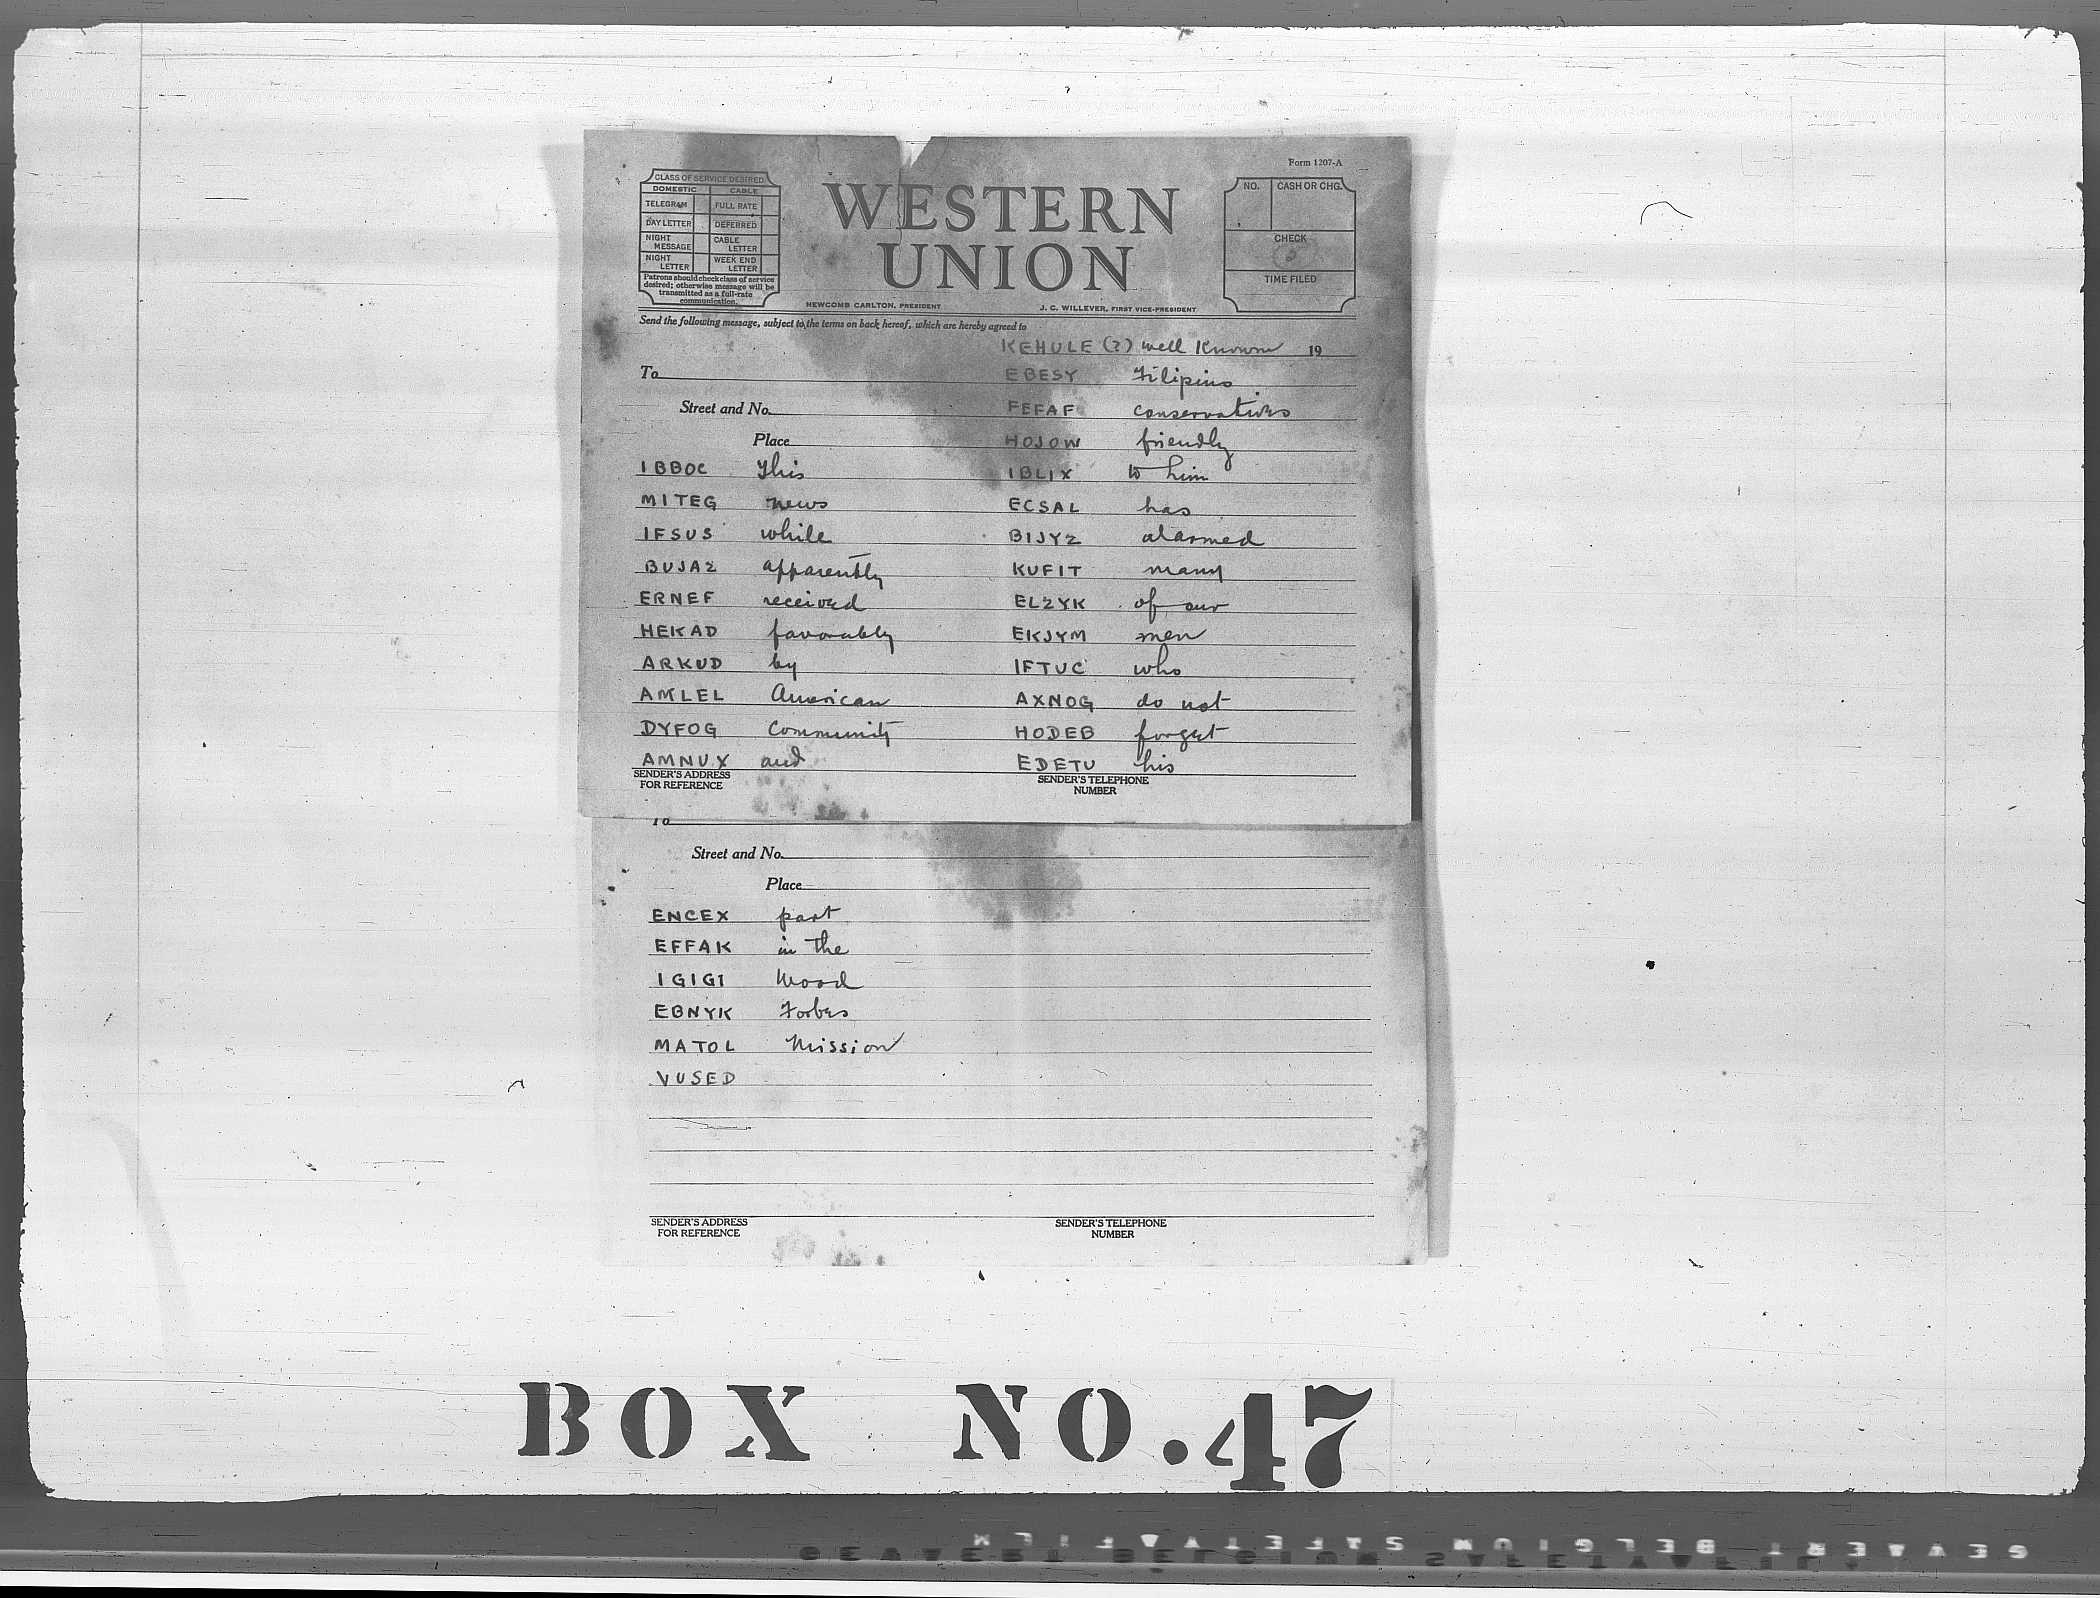 Form 1207-A
CLASS OF SERVICE DESIRED
DOMESTIC CABLE
TELEGRAM FULL RATE
DAY LETTER DEFERRED
NIGHT MESSAGE CABLE LETTER
NIGHT LETTER WEEK END LETTER
Patrons should check class of service
desired; otherwise message will be
transmitted as a full-rate
communication.
WESTERN
UNION
NEWCOMB CARLTON, PRESIDENT
J. C. WILLEVER, FIRST VICE-PRESIDENT
NO. CASH OR CHG.
CHECK
TIME FILED
Send the following message, subject to the terms on back hereof, which are hereby agreed to
19
To
Street and No.
Place
IBBOC This
MITEG news
IFSUS while
BUJAZ apparently
ERNEF received
HEKAD favorably
ARKUD by
AMLEL American
DYFOG community
AMNUX and
KEHULE (?) well known
EBESY Filipino
FEFAF conservatives
HOJOW friendly
IBLIX to him
ECSAL has
BIJYZ alarmed
KUFIT many
ELZYK of our
EKJYM men
IFTUC who
AXNOG do not
HODEB forget
EDETU his
SENDER'S ADDRESS
FOR REFERENCE
SENDER'S TELEPHONE
NUMBER
To
Street and No.
Place
ENCEX part
EFFAK in the
IGIGI Wood
EBNYK Forbes
MATOL Mission
VUSED
SENDER'S ADDRESS
FOR REFERENCE
SENDER'S TELEPHONE
NUMBER
BOX NO. 47
GEVAERT BELGIUM SAFETY FILM